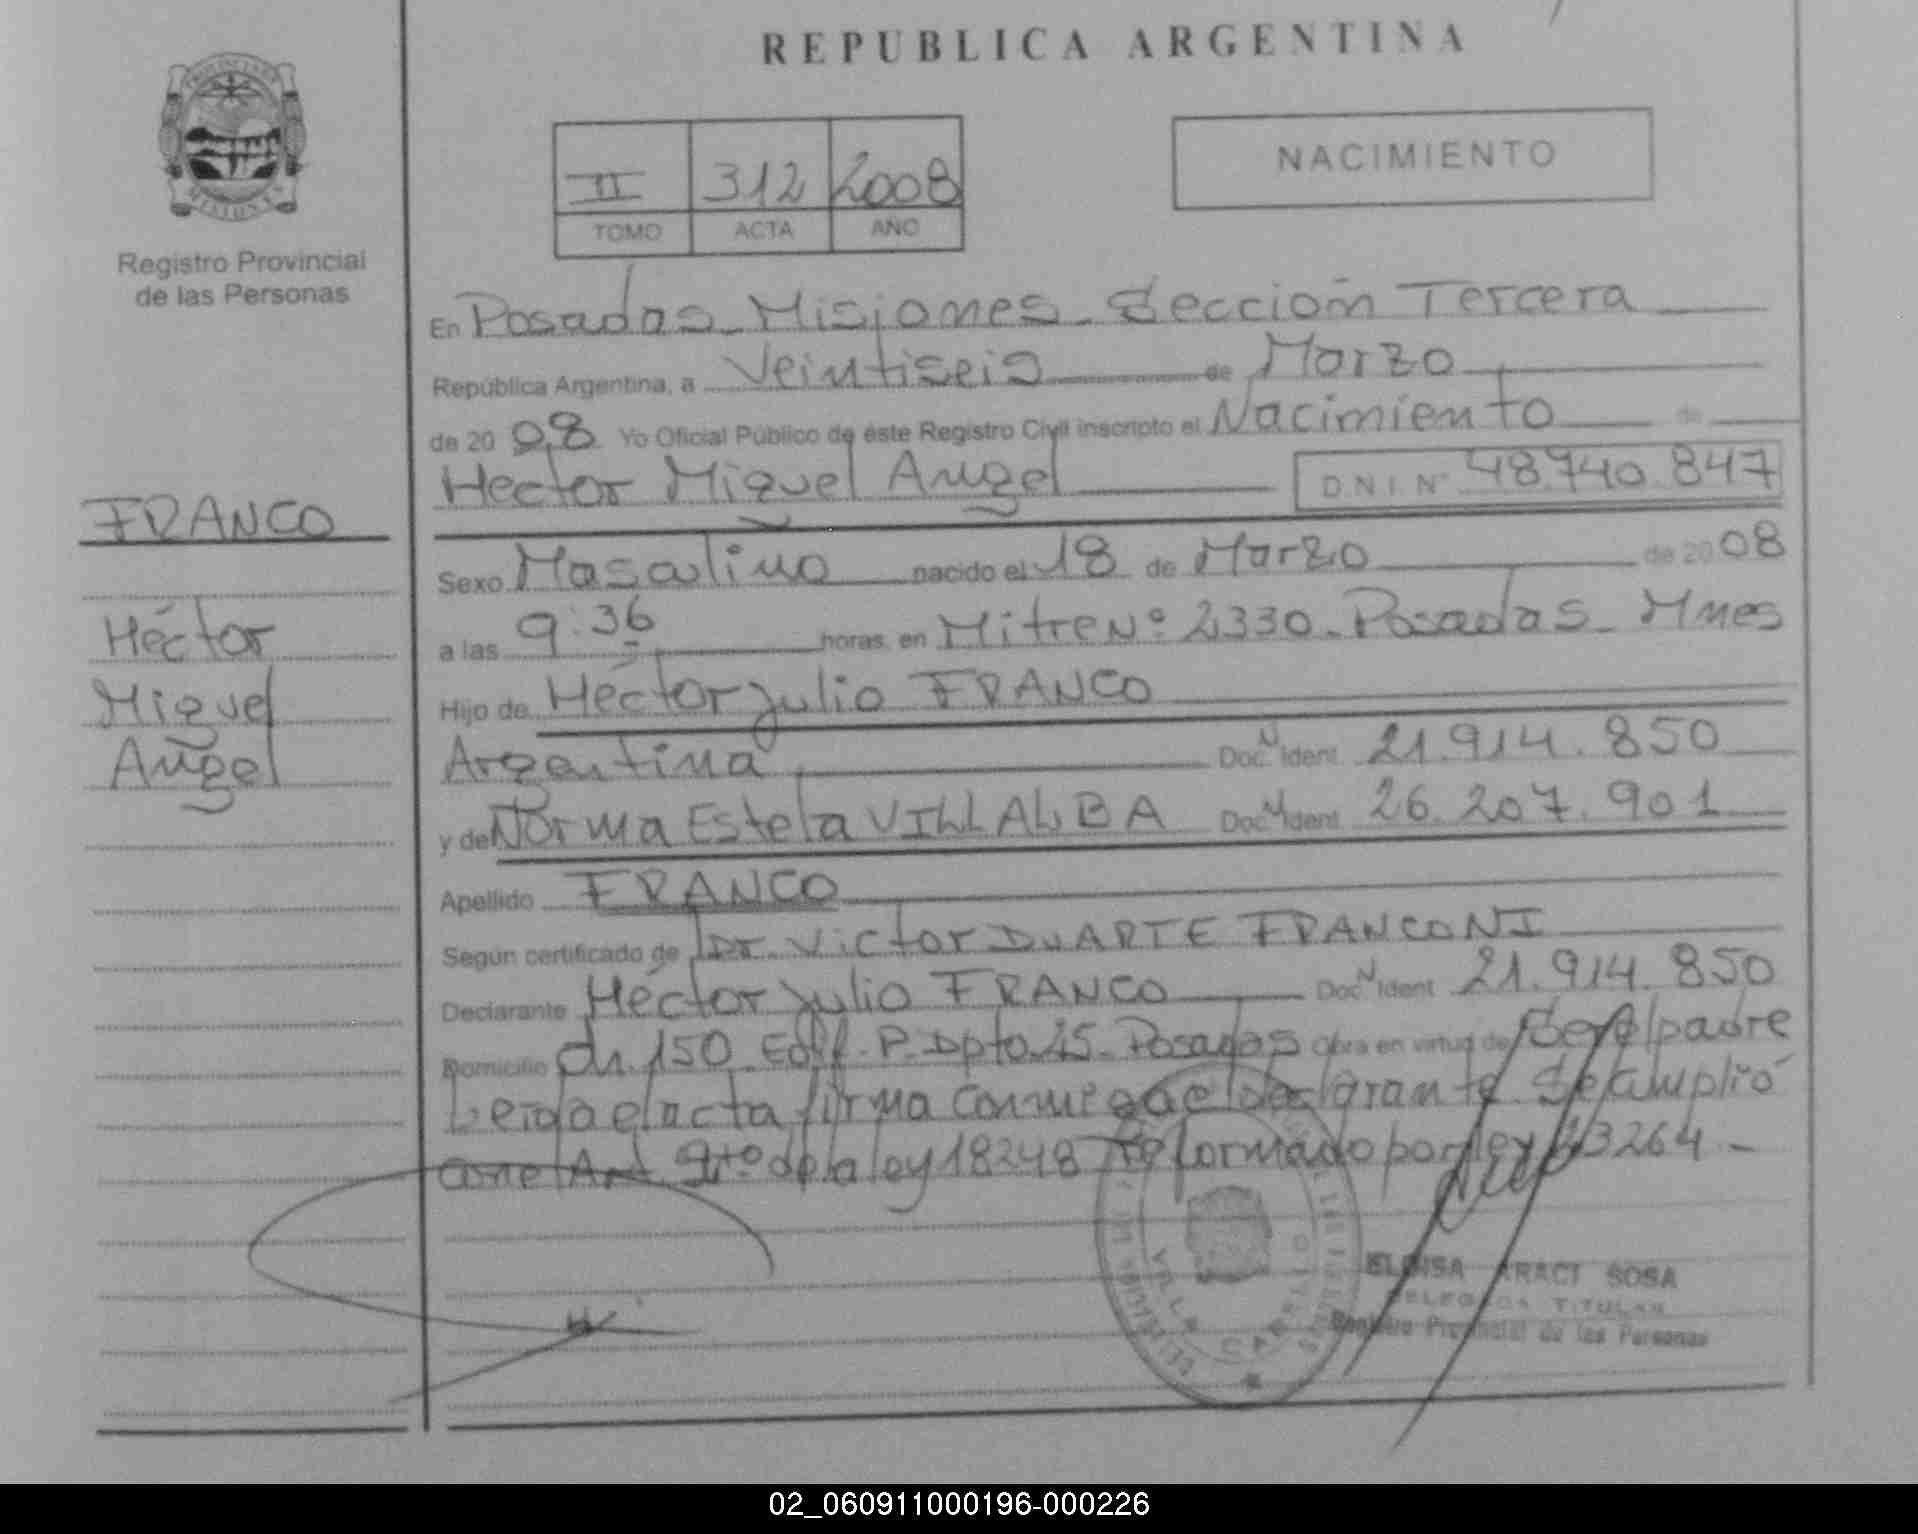 REPUBLICA ARGENTINA
NACIMIENTO
II 312 2008
TOMO ACTA AÑO
Registro Provincial
de las Personas
En Posadas Misiones Sección Tercera
República Argentina, a Veintiseis de Marzo
de 20 08 Yo Oficial Público de éste Registro Civil inscripto el Nacimiento de
Hector Miguel Angel D.N.I. Nº 48.740.847
FRANCO
Héctor
Miguel
Angel
Sexo Masculino nacido el 18 de Marzo de 20 08
a las 9:36 horas, en Mitre Nº 2330. Posadas Mnes
Hijo de Héctor Julio FRANCO
Argentina Doc. N Ident 21.914.850
y de Norma Estela VILLALBA Doc. N Ident 26.207.901
Apellido FRANCO
Según certificado de Dr. Victor DUARTE FRANCONI
Declarante Héctor Julio FRANCO Doc. N Ident 21.914.850
Domicilio Ch. 150 Edif. P. Dpto. 45. Posadas Obra en virtud de Ser el padre
Leida el acta firma conmigo el declarante. Se amplió
con el Art. de la ley 18248 reformado por ley 23264 -
VILLA CABELLO
ELOISA ARACI SOSA
DELEGADA TITULAR
Registro Provincial de las Personas
02_060911000196-000226